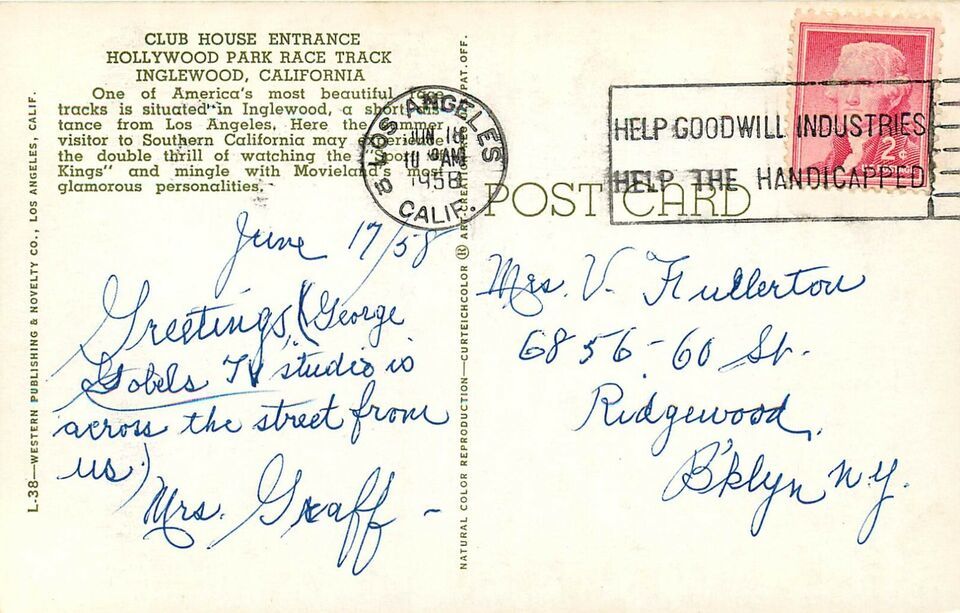 CLUB HOUSE ENTRANCE
HOLLYWOOD PARK RACE TRACK
INGLEWOOD, CALIFORNIA
One of America's most beautiful race
tracks is situated in Inglewood, a short dis-
tance from Los Angeles. Here the summer
visitor to Southern California may experience
the double thrill of watching the "Sport of
Kings" and mingle with Movieland's most
glamorous personalities.
L-38—WESTERN PUBLISHING & NOVELTY CO., LOS ANGELES, CALIF.
NATURAL COLOR REPRODUCTION—CURTEICHCOLOR ® ART-CREATION PAT. OFF.
LOS ANGELES
JUN 18
AM
1958
CALIF.
HELP GOODWILL INDUSTRIES
HELP THE HANDICAPPED
2¢
POST CARD
June 17/58
Greetings, (George
Gobels TV studio is
across the street from
us.)
Mrs. Graff -
Mrs. V. Fullerton
6856-60 St.
Ridgewood,
B'klyn N.Y.